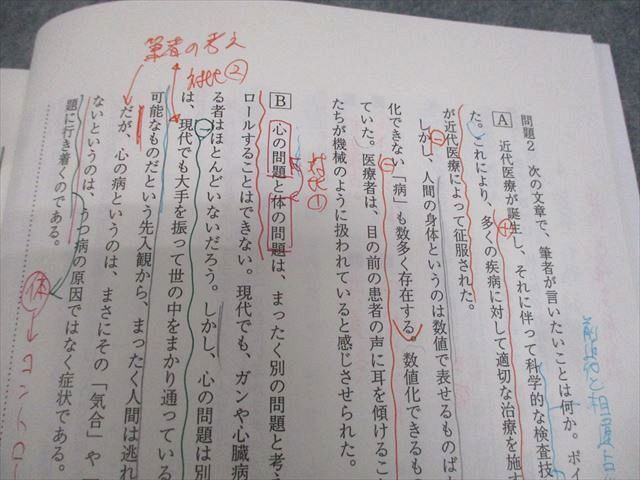 問題2 次の文章で、筆者が言いたいことは何か。ポイ
A 近代医療が誕生し、それに伴って科学的な検査技
た。これにより、多くの疾病に対して適切な治療を施す
が近代医療によって征服された。
しかし、人間の身体というのは数値で表せるものばか
化できない「病」も数多く存在する。数値化できるもの
ていた。医療者は、目の前の患者の声に耳を傾けること
たちが機械のように扱われていると感じさせられた。
B 心の問題と体の問題は、まったく別の問題と考え
ロールすることはできない。現代でも、ガンや心臓病
る者はほとんどいないだろう。しかし、心の問題は別
は、現代でも大手を振って世の中をまかり通っている
可能なものだという先入観から、まったく人間は逃れ
だが、心の病というのは、まさにその「気合」や「
ないというのは、うつ病の原因ではなく症状である。
題に行き着くのである。
筆者の考え
対比②
対比①
体
コントロー